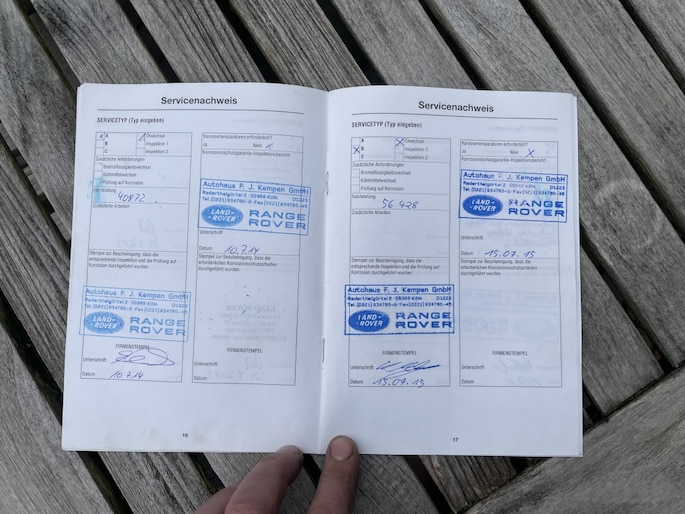 Servicenachweis
SERVICETYP (Typ eingeben)
x A x Ölwechsel
B Inspektion 1
C Inspektion 2
Zusätzliche Anforderungen
Bremsflüssigkeitwechsel
Kühlmittelwechsel
Prüfung auf Korrosion
40872
Zusätzliche Arbeiten
Stempel zur Bescheinigung, dass die
entsprechende Inspektion und die Prüfung auf
Korrosion durchgeführt wurden
Autohaus F. J. Kempen GmbH
Raderthalgürtel 2 - 50968 Köln 01223
LAND-
ROVER
RANGE
ROVER
FIRMENSTEMPEL
Unterschrift
Datum 10.7.14
Korrosionsreparaturen erforderlich?
Ja Nein x
Korrosionsschutzgarantie-Inspektionsübersicht
Autohaus F. J. Kempen GmbH
Raderthalgürtel 2 - 50968 Köln 01223
LAND-
ROVER
RANGE
ROVER
Unterschrift
Datum 10.7.14
Stempel zur Bescheinigung, dass die
erforderlichen Korrosionsschutzarbeiten
durchgeführt wurden
FIRMENSTEMPEL
Unterschrift
Datum
16
Servicenachweis
SERVICETYP (Typ eingeben)
A x Ölwechsel
x B Inspektion 1
C Inspektion 2
Zusätzliche Anforderungen
Bremsflüssigkeitwechsel
Kühlmittelwechsel
Prüfung auf Korrosion
Fahrleistung
56.428
Zusätzliche Arbeiten
Stempel zur Bescheinigung, dass die
entsprechende Inspektion und die Prüfung auf
Korrosion durchgeführt wurden
Autohaus F. J. Kempen GmbH
Raderthalgürtel 2 - 50968 Köln 01223
LAND-
ROVER
RANGE
ROVER
FIRMENSTEMPEL
Unterschrift
Datum 15.07.15
Korrosionsreparaturen erforderlich?
Ja Nein x
Korrosionsschutzgarantie-Inspektionsübersicht
Autohaus F. J. Kempen GmbH
Raderthalgürtel 2 - 50968 Köln 01223
LAND-
ROVER
RANGE
ROVER
Unterschrift
Datum 15.07.15
Stempel zur Bescheinigung, dass die
erforderlichen Korrosionsschutzarbeiten
durchgeführt wurden
FIRMENSTEMPEL
Unterschrift
Datum
17